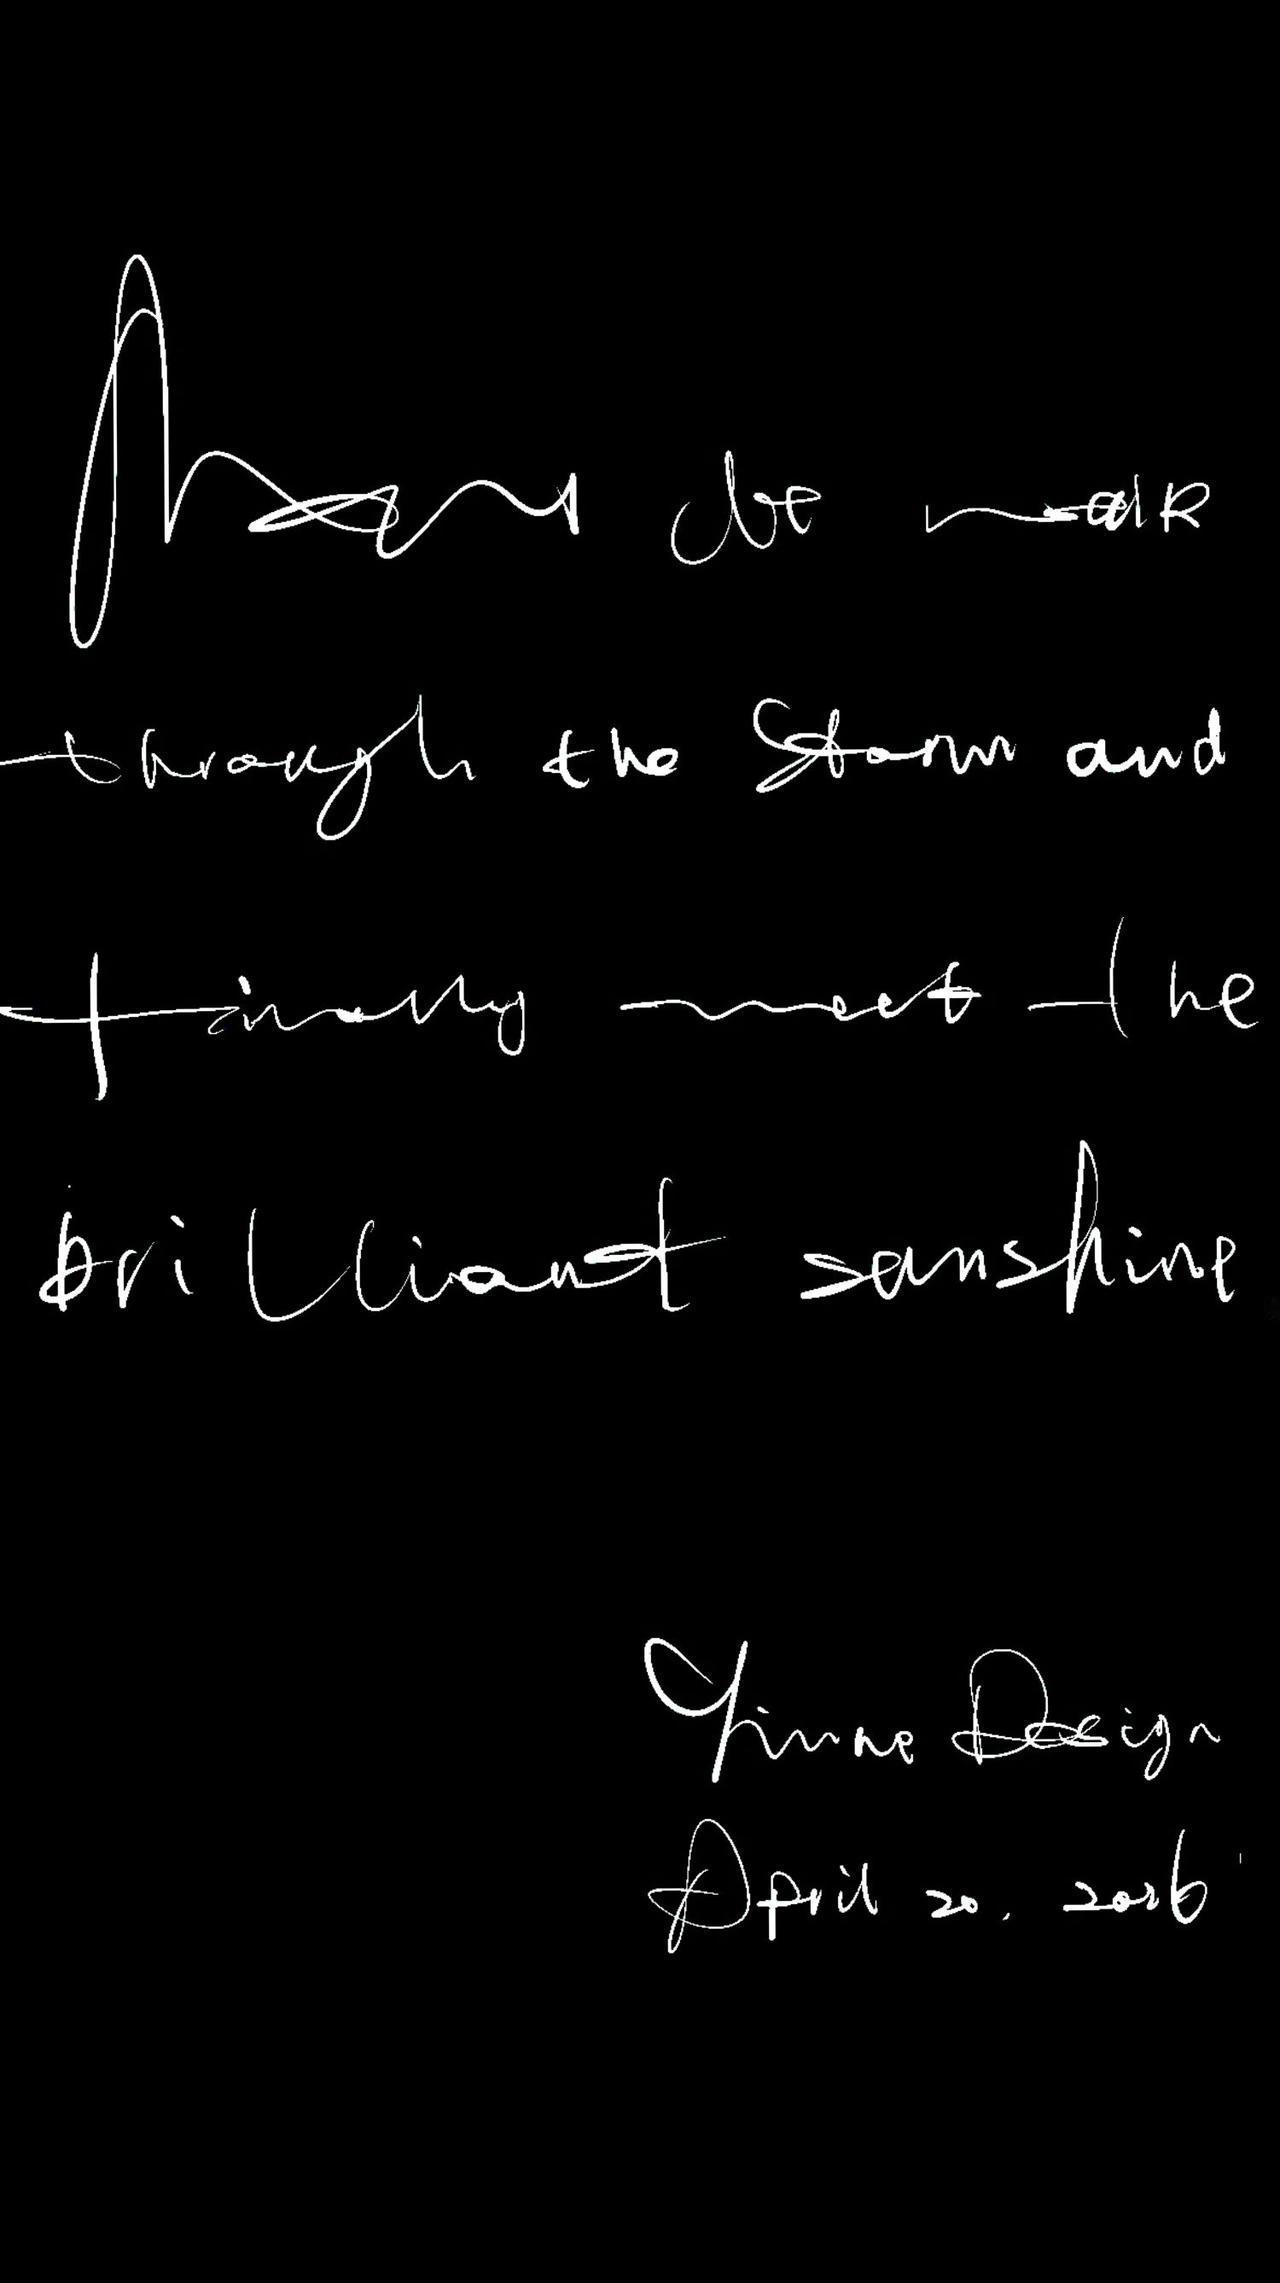 May we walk
through the storm and
finally meet the
brilliant sunshine
Yinne Design
April 20. 2026